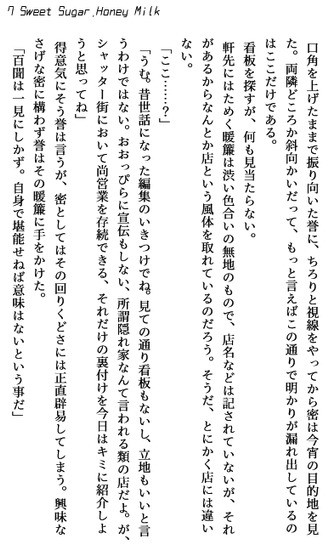 7 Sweet Sugar,Honey Milk
口角を上げたままで振り向いた誉に、ちろりと視線をやってから密は今宵の目的地を見
た。両隣どころか斜向かいだって、もっと言えばこの通りで明かりが漏れ出しているの
はここだけである。
看板を探すが、何も見当たらない。
軒先にはためく暖簾は渋い色合いの無地のもので、店名などは記されていないが、それ
があるからなんとか店という風体を取れているのだろう。そうだ、とにかく店には違い
ない。
「ここ……？」
「うむ。昔世話になった編集のいきつけでね。見ての通り看板もないし、立地もいいと言
うわけではない。おおっぴらに宣伝もしない、所謂隠れ家なんて言われる類の店だよ。が、
シャッター街において尚営業を存続できる、それだけの裏付けを今日はキミに紹介しよ
うと思ってね」
得意気にそう誉は言うが、密としてはその回りくどさには正直辟易してしまう。興味な
さげな密に構わず誉はその暖簾に手をかけた。
「百聞は一見にしかず。自身で堪能せねば意味はないという事だ」